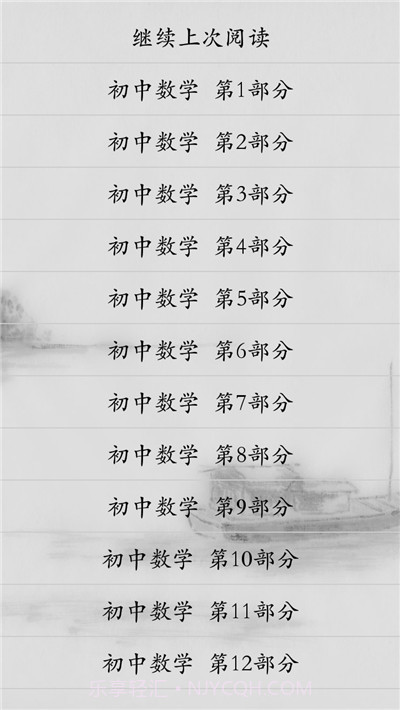 继续上次阅读
初中数学 第1部分
初中数学 第2部分
初中数学 第3部分
初中数学 第4部分
初中数学 第5部分
初中数学 第6部分
初中数学 第7部分
初中数学 第8部分
初中数学 第9部分
初中数学 第10部分
初中数学 第11部分
初中数学 第12部分
乐享轻汇·NJYCQH.COM